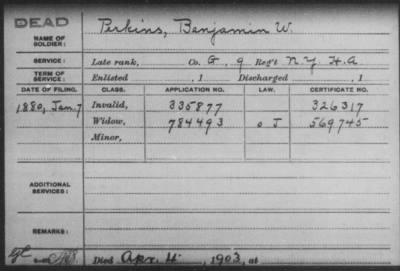 DEAD
NAME OF SOLDIER: Perkins, Benjamin W.
SERVICE: Late rank, Co. G, 9 Reg't N.Y. H.A.
TERM OF SERVICE: Enlisted , 1 Discharged , 1
DATE OF FILING. CLASS. APPLICATION NO. LAW. CERTIFICATE NO.
1880, Jan. 7 Invalid, 335877 326317
Widow, 784493 o J 569745
Minor,
ADDITIONAL SERVICES:
REMARKS:
Died Apr. 4 , 1903, at